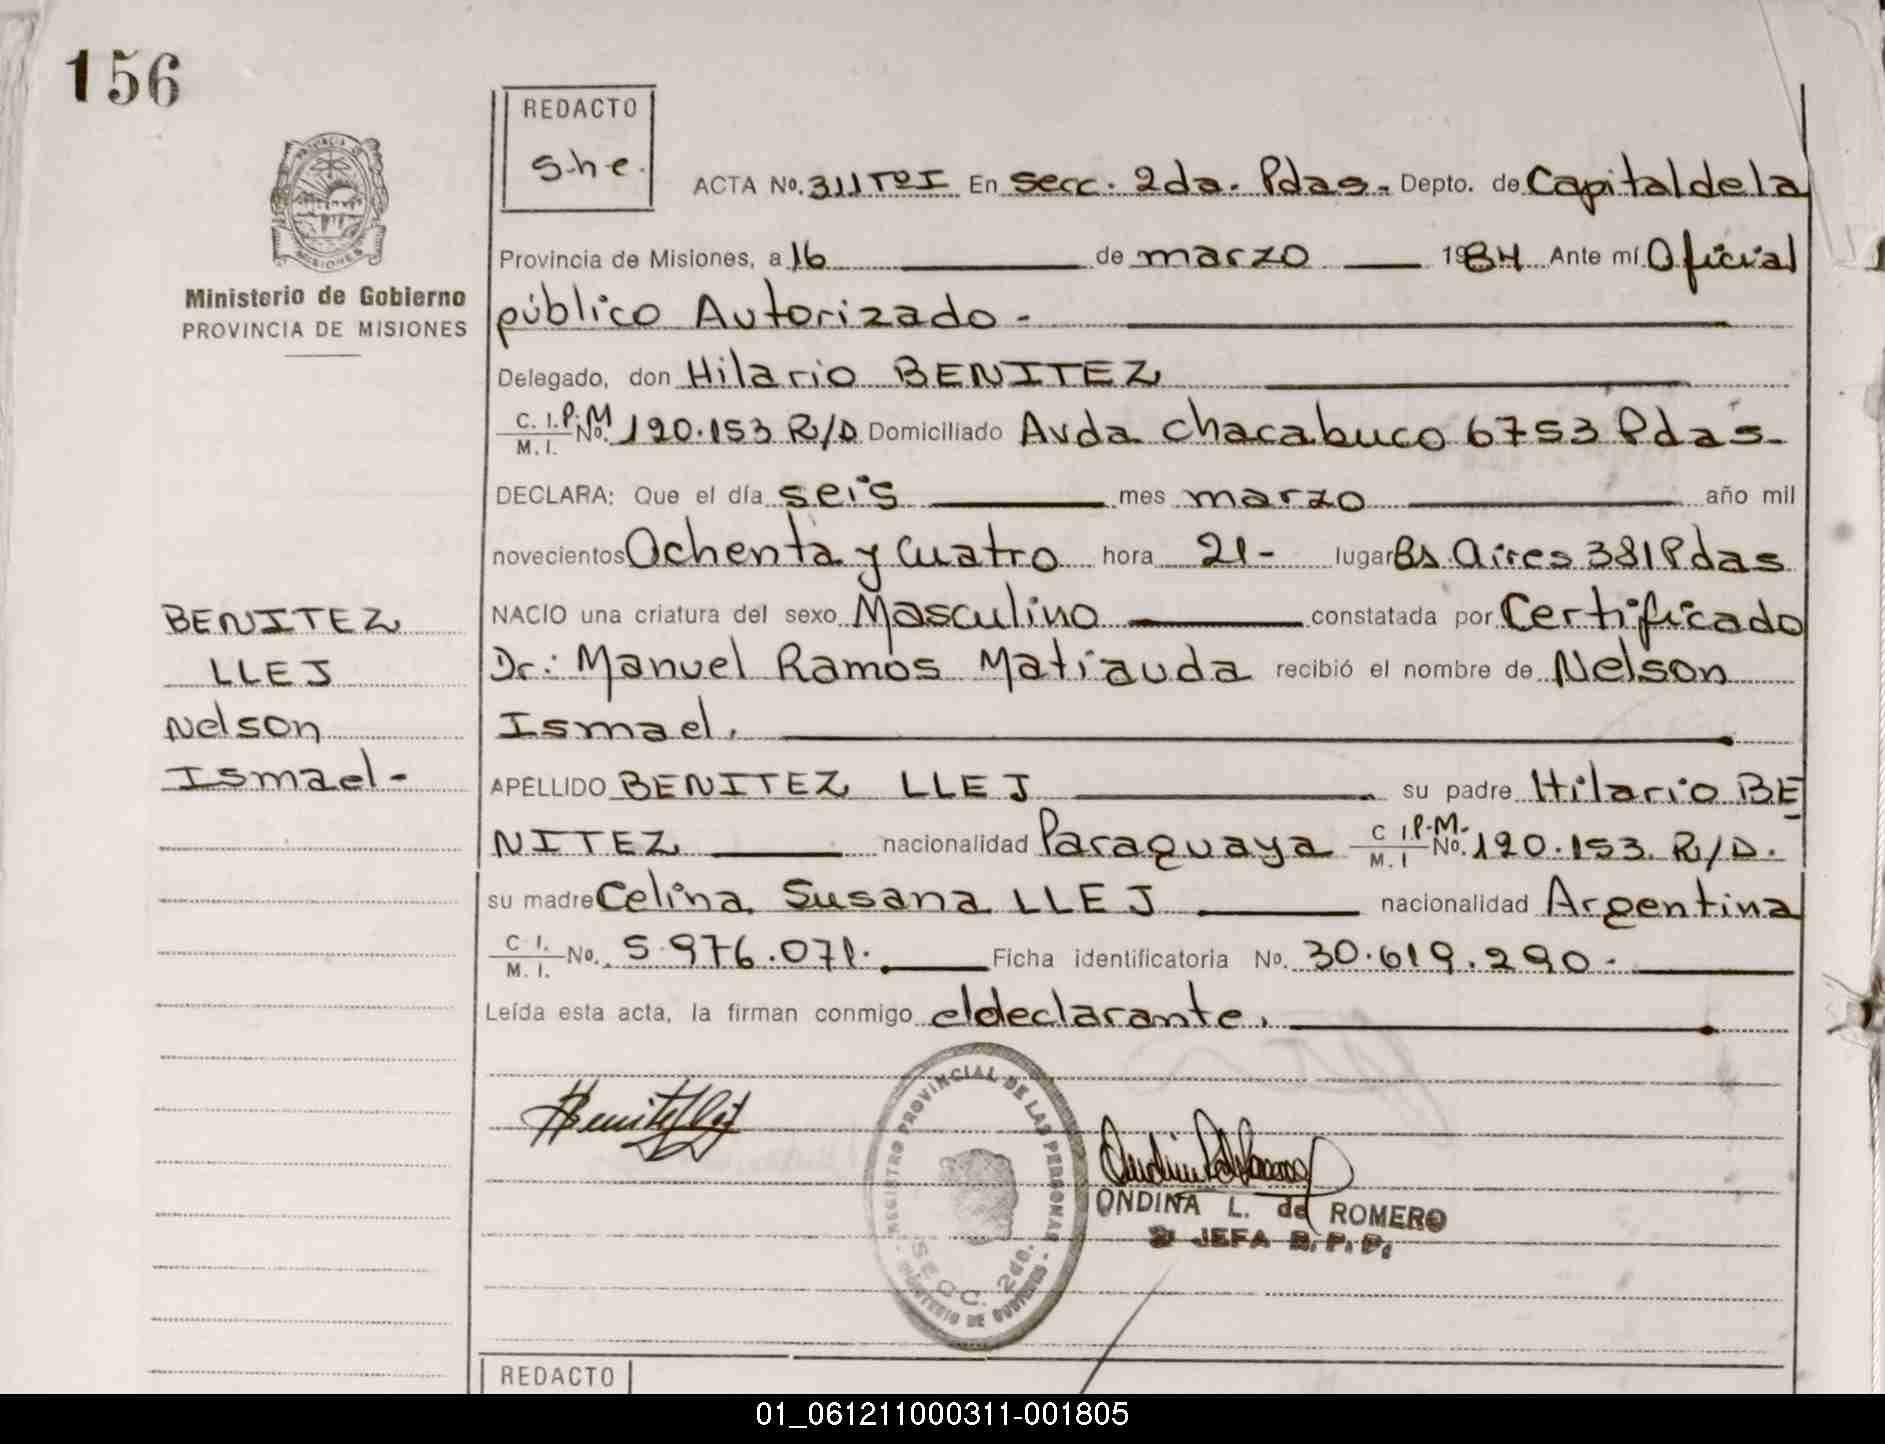 156
REDACTO
s.h.e.
ACTA No. 311 ToI En secc. 2da. Pdas. Depto. de Capital de la
PROVINCIA DE
MISIONES
Provincia de Misiones, a 16 de marzo 1984 Ante mí Oficial
Ministerio de Gobierno
PROVINCIA DE MISIONES
público Autorizado.-
Delegado, don Hilario BENITEZ
C. I. P.M
M. I. No. 190.153 R/D Domiciliado Avda Chacabuco 6753 Pdas-
DECLARA: Que el día seis mes marzo año mil
novecientos Ochenta y cuatro hora 21- lugar Bs. Aires 381 Pdas
NACIO una criatura del sexo Masculino constatada por Certificado
Dr: Manuel Ramos Matiauda recibió el nombre de Nelson
Ismael.
BENITEZ
LLEJ
Nelson
Ismael-
APELLIDO BENITEZ LLEJ su padre Hilario BE
NITEZ nacionalidad Paraguaya C I. P.M.
M. I No. 190.153. R/D.
su madre Celina Susana LLEJ nacionalidad Argentina
C. I.
M. I. No. 5.976.071. Ficha identificatoria No. 30.619.290.
Leída esta acta, la firman conmigo el declarante.
REGISTRO PROVINCIAL DE LAS PERSONAS
SECC. 2da.
MINISTERIO DE GOBIERNO
ONDINA L. de ROMERO
JEFA R. P. P.
REDACTO
01_061211000311-001805